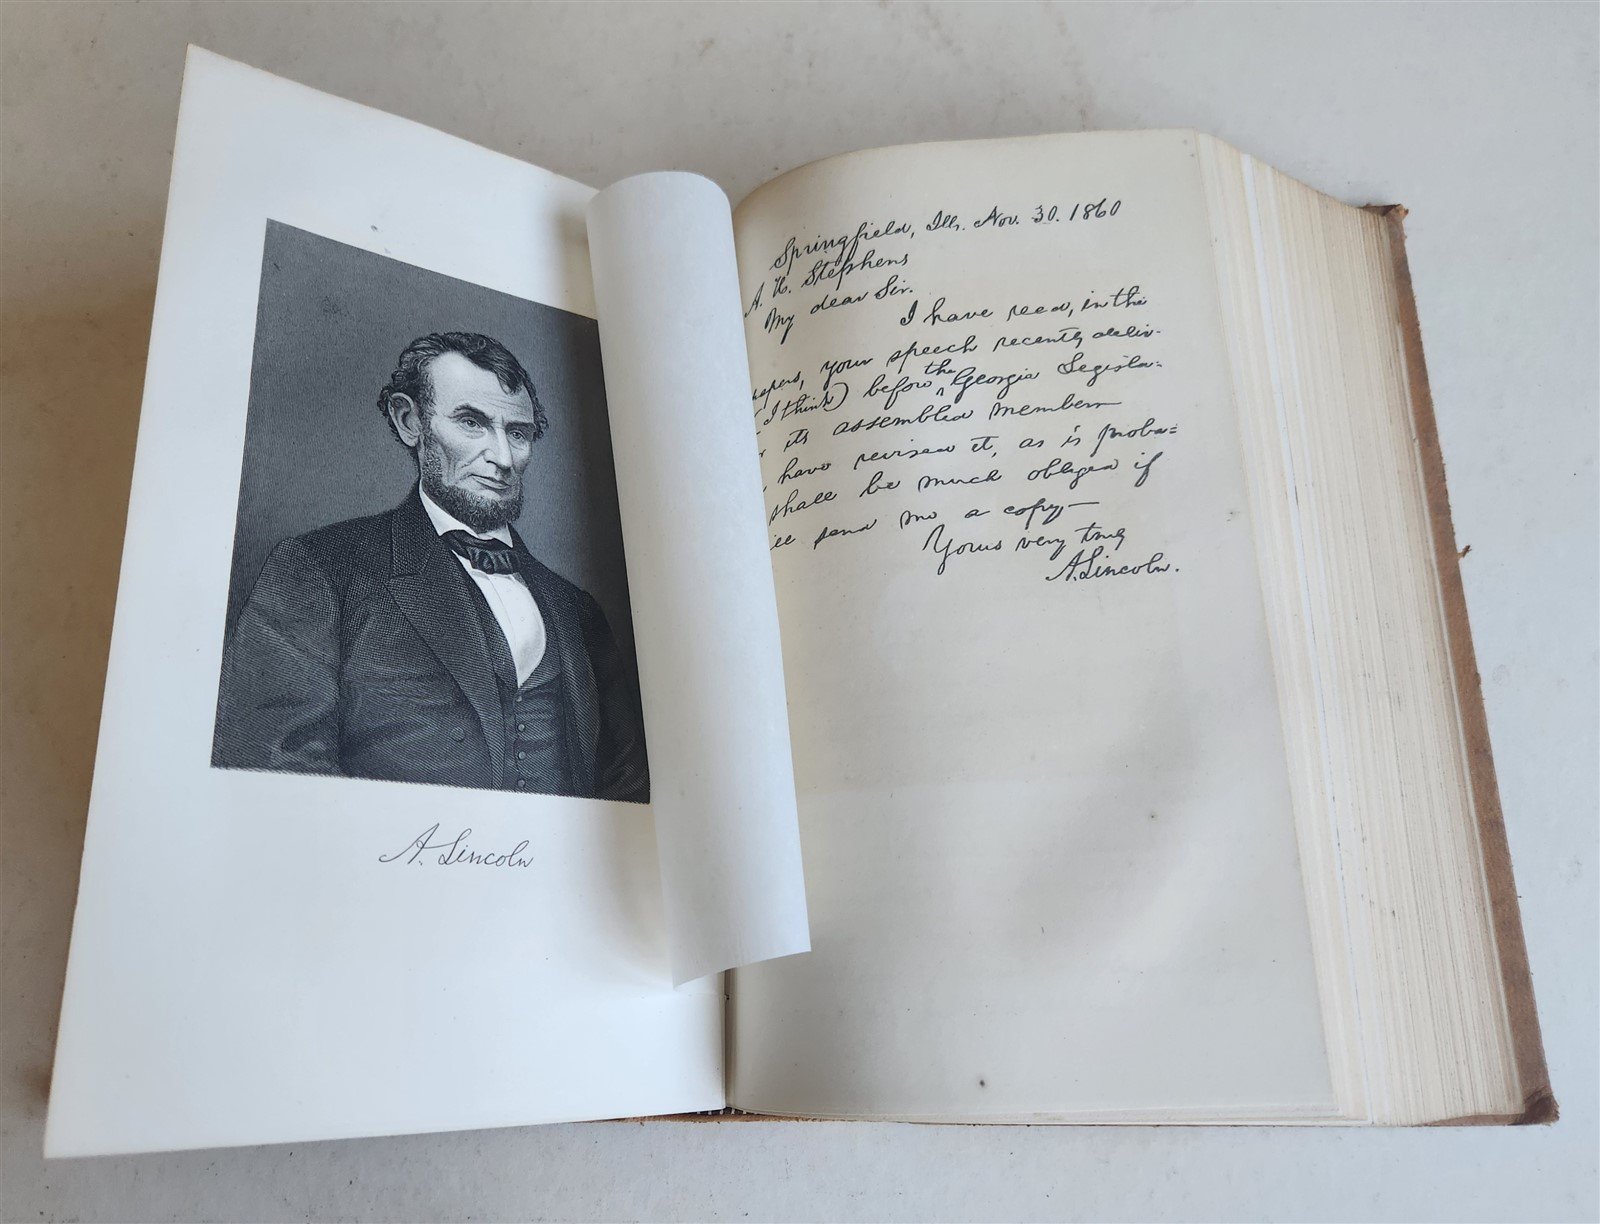 A. Lincoln
Springfield, Ills. Nov. 30. 1860
A. H. Stephens
My dear Sir.
I have read, in the
papers, your speech recently deliv-
(I think) before the Georgia Legisla-
its assembled members
have revised it, as is proba=
shall be much obliged if
send me a copy—
Yours very truly
A. Lincoln.